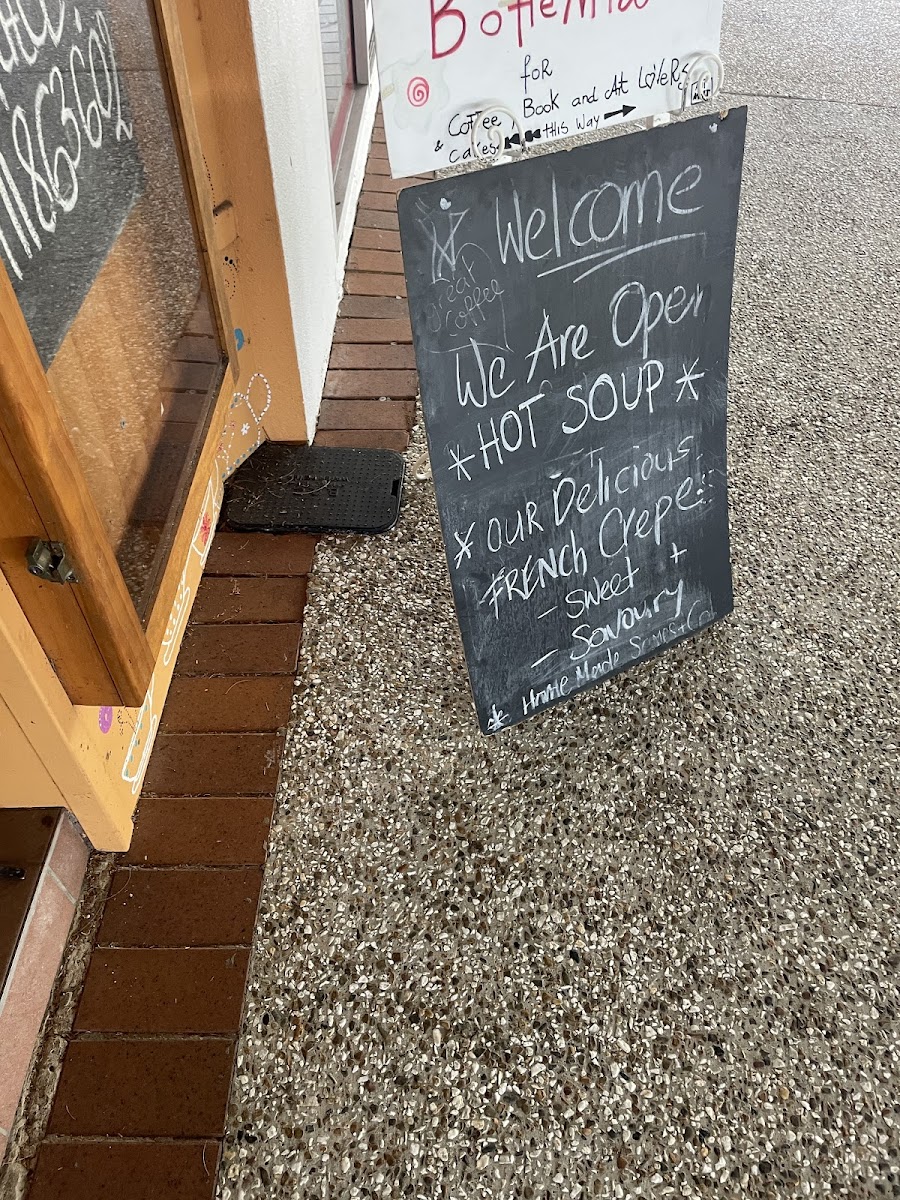 Bohemia
for
Coffee, Book and Art Lovers
& Cakes this way
Welcome
Great
Coffee
We Are Open
*HOT SOUP*
+
* OUR Delicious
FRENCH Crepe
- Sweet +
- Savoury
* Home Made